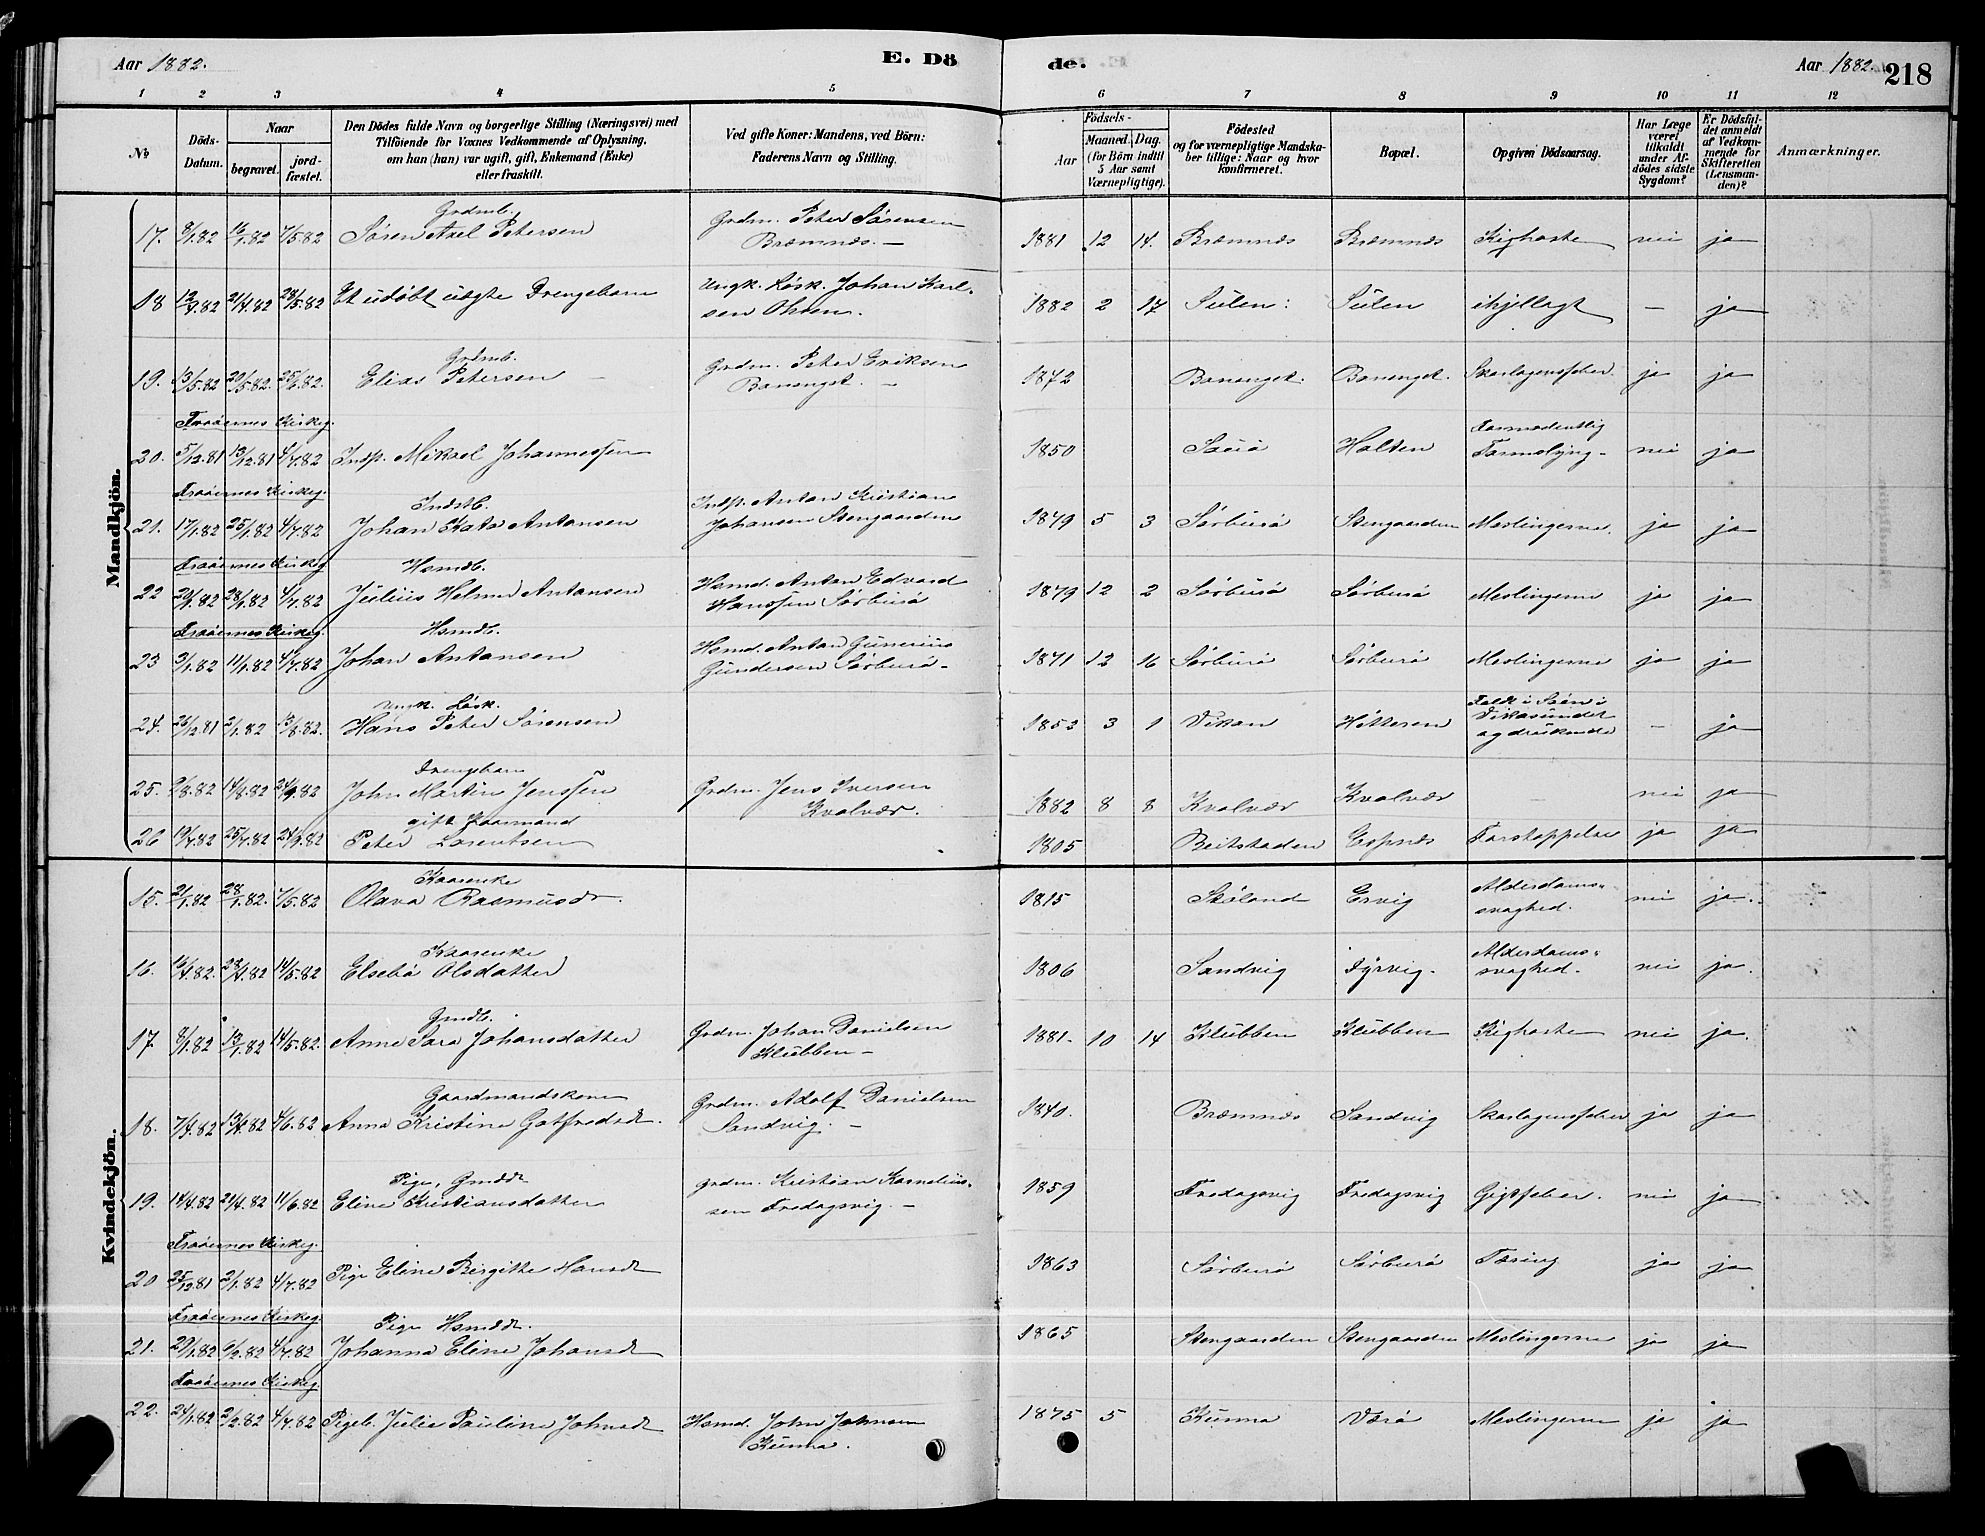 Aar 1882. E. Dö de. Aar 1882. 218
1 2 3 4 5 6 7 8 9 10 11 12
No Döds-Datum. Naar begravet. jord-fæstet. Den Dödes fulde Navn og borgerlige Stilling (Næringsvei) med Tilföiende for Voxnes Vedkommende af Oplysning, om han (hun) var ugift, gift, Enkemand (Enke) eller fraskilt. Ved gifte Koner: Mandens, ved Börn: Faderens Navn og Stilling. Födsels- Aar Maaned. Dag. (for Börn indtil 5 Aar samt Værnepligtige). Födested og for værnepligtige Mandska-ber tillige: Naar og hvor konfirmeret. Bopæl. Opgiven Dödsaarsag. Har Læge været tilkaldt under Af-dödes sidste Sygdom? Er Dödsfal-det anmeldt af Vedkom-mende for Skifteretten (Lensman-den)? Anmærkninger.
Mandkjön.
17. 8/1.82 16/1.82 7/5.82 Grdmb. Søren Axel Petersen Grdm. Peter Sørensen Bræmnes. — 1881 12 14. Bræmnes Bræmnes Kighoste nei ja
18 12/4.82 21/4.82 28/5.82 Et udøbt uægte Drengebarn Ungk. Løsk. Johan Karl-sen Olsen. 1882 2 17 Sulen: Sulen ihjellagt — ja
19. 13/5.82 20/5.82. 25/6.82. Grdmb. Elias Petersen — Grdm. Peter Eriksen Bonenget. — 1872 Bonenget. Bonenget. Skarlagensfeber. ja ja
Froøernes Kirkeg.
20. 5/12.81 13/12.81 4/7.82 Indp. Mikael Johannessen 1850 Sauø Holten Formodentlig Tarmslyng- nei ja
Froøernes Kirkeg.
21. 17/1.82 25/1.82 4/7.82 Indstb. Johan Antonsen Indp. Anton Kristian Johansen Stengaarden 1879 5 3 Sørburø Stengaarden Meslingerne. ja ja
Froøernes Kirkeg
22 20/1.82 28/1.82 4/7.82 Hsmdb. Julius Helmer Antonsen Hsmd. Anton Edvard Hanssen Sørburø 1879 12 2 Sørburø Sørburø Meslingerne ja ja
Froøernes Kirkeg.
23 3/1.82 11/1.82 4/7.82 Hsmdb. Johan Antonsen Hsmd. Anton Gunerius Gundersen Sørburø- 1871 12 16 Sørburø Sørburø Meslingerne ja ja
24. 26/12.81 2/1.82 13/8.82. Ungk. Løsk. Hans Peter Sørensen 1853 3 1 Vikan Hitteren Faldt i Søen i Vikasundet og druknede — ja
25. 9/8.82 14/8.82 24/9.82 Drengebarn John Martin Jenssen Grdm. Jens Iversen Kvalvær. 1882 8 8 Kvalvær Kvalvær — nei ja
26 19/7.82 25/7.82 24/9.82 gift Kaarmand Peter Lorentsen 1805 Beitstaden Espnes Forstoppelse ja ja
Kvindekjön.
15. 21/1.82 28/1.82. 7/5.82 Kaarenke Olava Rasmusdr. 1815 Skøland Ervig Alderdoms-svaghed. nei ja.
16. 16/4.82. 23/4.82 14/5.82 Kaarenke Elsebø Olsdatter 1806 Sandvig Dyrvig. Alderdoms-svaghed. nei ja.
17 8/1.82 13/1.82 14/5.82. Gmdb. Anne Sara Johansdatter Grdm. Johan Danielsen Klubben — 1881. 10 14 Klubben Klubben Kighoste nei ja.
18. 7/4.82 13/4.82 4/6.82 Gaardmandskone Anna Kristine Gotfredsdr. Grdm. Adolf Danielsen Sandvig. — 1840. Bræmnes Sandvig Skarlagensfeber ja ja
19. 14/4.82 21/4.82 11/6.82 Pige, Gmddr Eline Kristiansdatter Grdm. Kristian Kornelius-sen Fredagsvig. — 1859 Fredagsvig Fredagsvig Gigtfeber. nei ja
Froøernes Kirkeg.
20 25/12.81 2/1.82 4/7.82 Pige Eline Birgitte Hansdr 1863 Sørburø Sørburø Tæring ja ja
Froøernes Kirkeg.
21. 29/1.82 6/2.82 4/7.82 Pige Hsmddr. Johanna Eline Johansdr 1865 Stengaarden Stengaarden Meslingerne ja ja
Froøernes Kirkeg.
22. 24/1.82 2/2.82 4/7.82 Pigeb. Julie Pauline Johnsdr Hsmd. John Johnsen Kunna. 1875 5 Kunna Værø Meslingerne ja ja